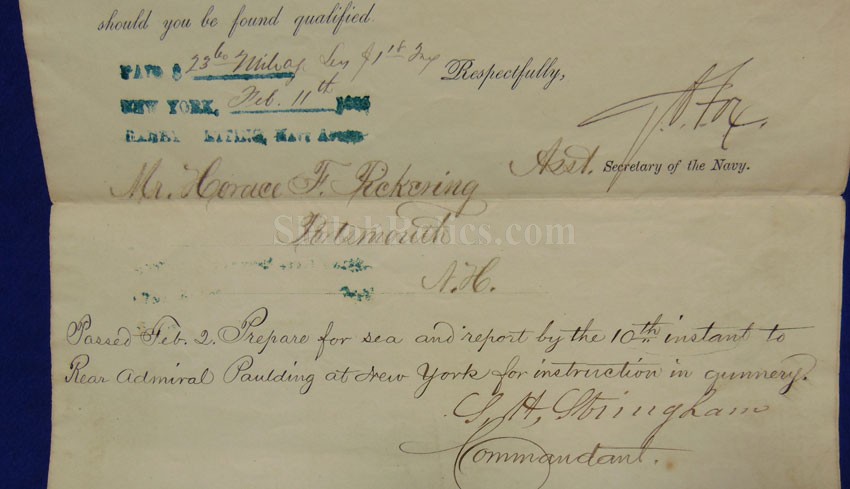 should you be found qualified.
PAID $ 23 60 Mileage
Respectfully,
NEW YORK, Feb. 11th
G. V. Fox.
Asst. Secretary of the Navy.
Mr. Horace F. Pickering
Portsmouth
N.H.
Passed Feb. 2. Prepare for sea and report by the 10th instant to
Rear Admiral Paulding at New York for instruction in gunnery.
S. H. Stringham
Commandant.